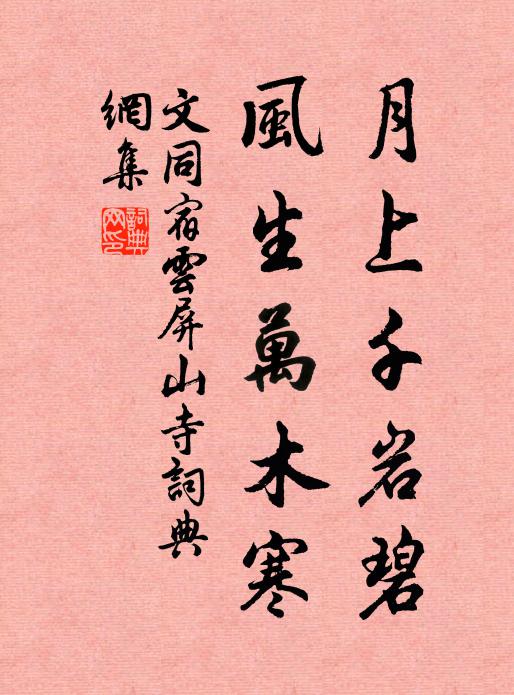 月上千岩碧
風生萬木寒
文同宿雲屏山寺詞典
網集
詞典
网印